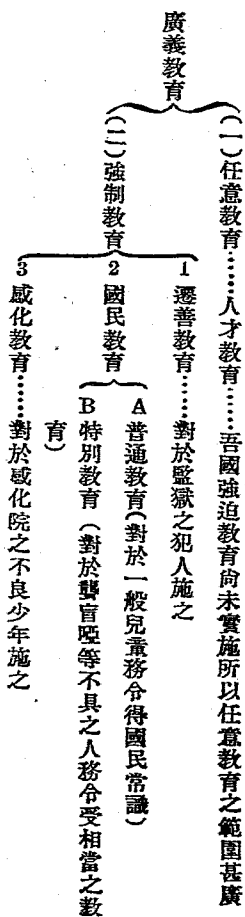 廣義教育
(一)任意教育……人才教育……吾國強迫教育尙未實施所以任意教育之範圍甚廣
(二)強制教育
1 遷善教育……對於監獄之犯人施之
2 國民教育
A 普通教育(對於一般兒童務令得國民常識)
B 特別教育(對於聾盲啞等不具之人務令受相當之敎
育)
3 感化教育……對於感化院之不良少年施之